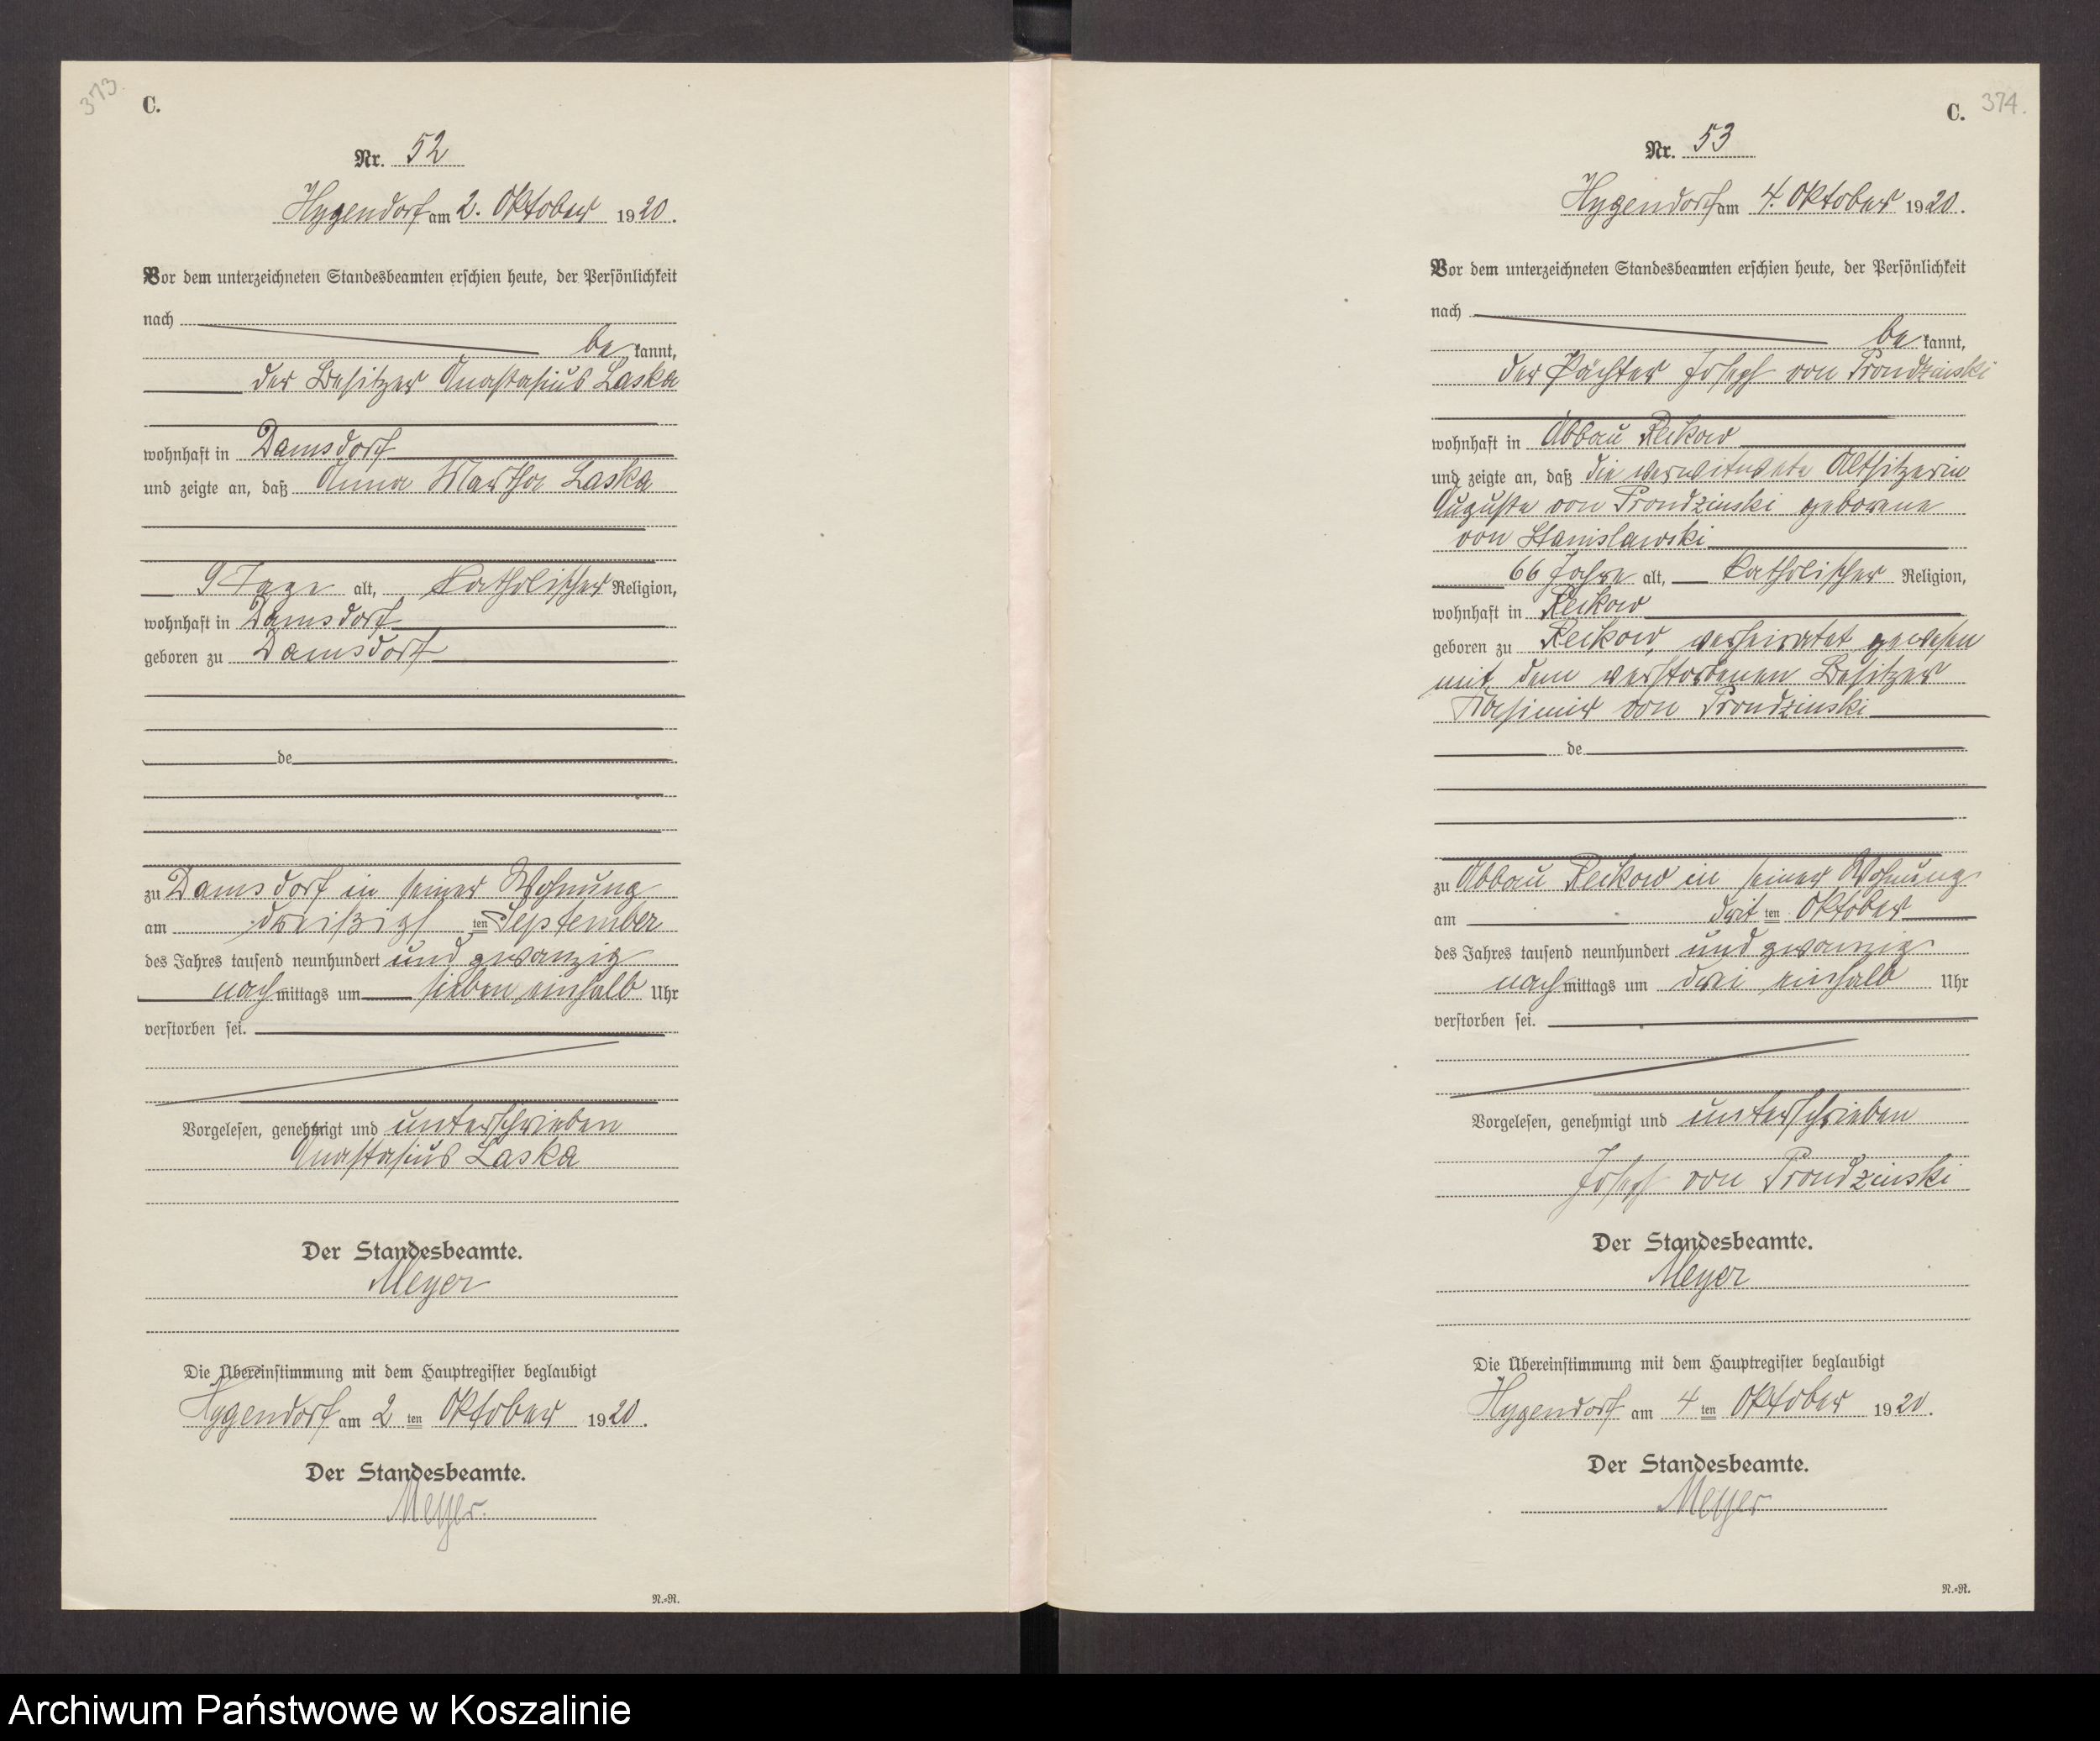 373.
C.
Nr. 52
Hygendorf am 2. Oktober 1920.
Vor dem unterzeichneten Standesbeamten erschien heute, der Persönlichkeit
nach
be kannt,
der Besitzer Anastasius Laska
wohnhaft in Damsdorf
und zeigte an, daß Anna Martha Laska
9 Tage alt, katholischer Religion,
wohnhaft in Damsdorf
geboren zu Damsdorf
de
zu Damsdorf in seiner Wohnung
am dreißigs ten September
des Jahres tausend neunhundert und zwanzig
nach mittags um sieben einhalb Uhr
verstorben sei.
Vorgelesen, genehmigt und unterschrieben
Anastasius Laska
Der Standesbeamte.
Meyer
Die Übereinstimmung mit dem Hauptregister beglaubigt
Hygendorf am 2 ten Oktober 1920.
Der Standesbeamte.
Meyer.
N.-R.
C. 374.
Nr. 53
Hygendorf am 4. Oktober 1920.
Vor dem unterzeichneten Standesbeamten erschien heute, der Persönlichkeit
nach
be kannt,
der Pächter Joseph von Prondzinski
wohnhaft in Abbau Reckow
und zeigte an, daß die verwitwete Altsitzerin
Auguste von Prondzinski geborene
von Stanislawski
66 Jahre alt, katholischer Religion,
wohnhaft in Reckow
geboren zu Reckow, verheiratet gewesen
mit dem verstorbenen Besitzer
Kasimir von Prondzinski
de
zu Abbau Reckow in seiner Wohnung
am drit ten Oktober
des Jahres tausend neunhundert und zwanzig
nach mittags um drei einhalb Uhr
verstorben sei.
Vorgelesen, genehmigt und unterschrieben
Joseph von Prondzinski
Der Standesbeamte.
Meyer
Die Übereinstimmung mit dem Hauptregister beglaubigt
Hygendorf am 4 ten Oktober 1920.
Der Standesbeamte.
Meyer
N.-R.
Archiwum Państwowe w Koszalinie